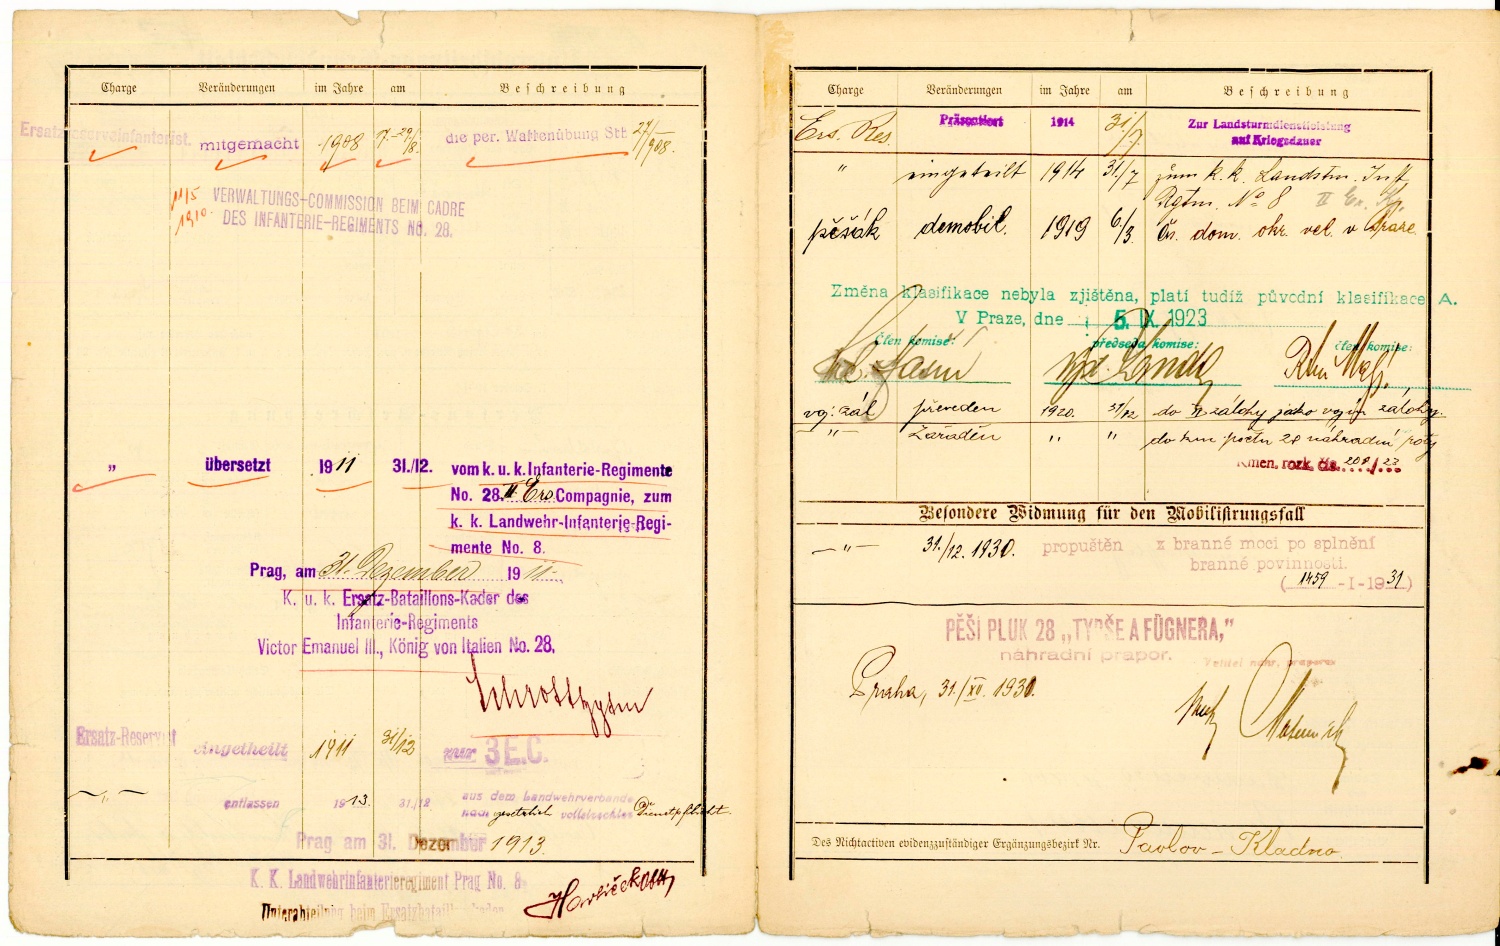 Charge Veränderungen im Jahre am Beschreibung
Ersatzreserveinfanterist. mitgemacht 1908 17.-29/8. die per. Waffenübung Stt 27/908.
11/5 1910. VERWALTUNGS-COMMISSION BEIM CADRE
DES INFANTERIE-REGIMENTS No. 28.
" übersetzt 1911 31./12. vom k. u. k. Infanterie-Regimente
No. 28. II Ers Compagnie, zum
k. k. Landwehr-Infanterie-Regi-
mente No. 8.
Prag, am 31. Dezember 1911.
K. u. k. Ersatz-Bataillons-Kader des
Infanterie-Regiments
Victor Emanuel III., König von Italien No. 28,
Ersatz-Reservist eingetheilt 1911 31/12 zur 3 E.C.
" entlassen 1913. 31./12 aus dem Landwehrverbande
nach gesetzlich vollstreckter Dienstpflicht.
Prag am 31. Dezember 1913.
K. K. Landwehrinfanterieregiment Prag No. 8
Unterabteilung beim Ersatzbataillonskader
Charge Veränderungen im Jahre am Beschreibung
Ers. Res. Präsentiert 1914 31/7. Zur Landsturmdienstleistung
auf Kriegsdauer
" eingeteilt 1914 31./7 zum k. k. Landstm. Inft
Rgtm. No 8 II Er. Kp.
pěšák demobil. 1919 6/3. čs. dom. okr. vel. v Praze.
Změna klasifikace nebyla zjištěna, platí tudíž původní klasifikace A.
V Praze, dne 5. IX. 1923
člen komise: předseda komise: člen komise:
voj. zál převeden 1920. 31/12 do zálohy jako vojín zálohy.
" Zařaděn " " do km. počtu 28 náhradní roty
Kmen. rozk. čís. 208/23
Besondere Widmung für den Mobilisirungsfall
" 31./12. 1930. propuštěn z branné moci po splnění
branné povinnosti.
(1459 -I-1931)
PĚŠÍ PLUK 28 „TYRŠE A FÜGNERA,"
náhradní prapor.
Velitel náhr. praporu
Praha, 31./XII. 1930.
Des Nichtactiven evidenzzuständiger Ergänzungsbezirk Nr. Pavlov - Kladno